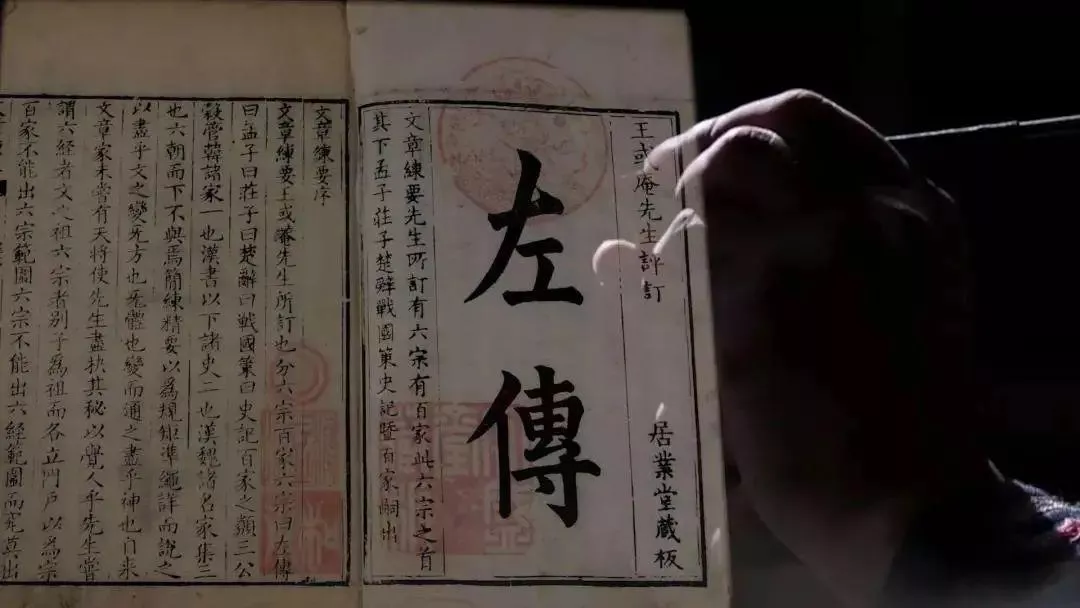 王或庵先生評訂
居業堂藏板
左傳
文章練要先生所訂有六宗有百家此六宗之首
其下孟子莊子楚辭戰國策史記暨百家嗣出
文章練要序
文章練要王或菴先生所訂也分六宗百家六宗曰左傳
曰孟子曰莊子曰楚辭曰戰國策曰史記百家之類三公
穀管韓諸家一也漢書以下諸史二也漢魏諸名家集三
也六朝而下不與焉簡練精要以為規矩準繩詳而說之
以盡乎文之變旡方也旡體也變而通之盡乎神也自来
文章家未嘗有天將使先生盡抉其秘以覺人乎先生嘗
謂六經者文之祖六宗者别子為祖而各立門戶以為宗
百家不能出六宗範圍六宗不能出六經範圍而究莫出